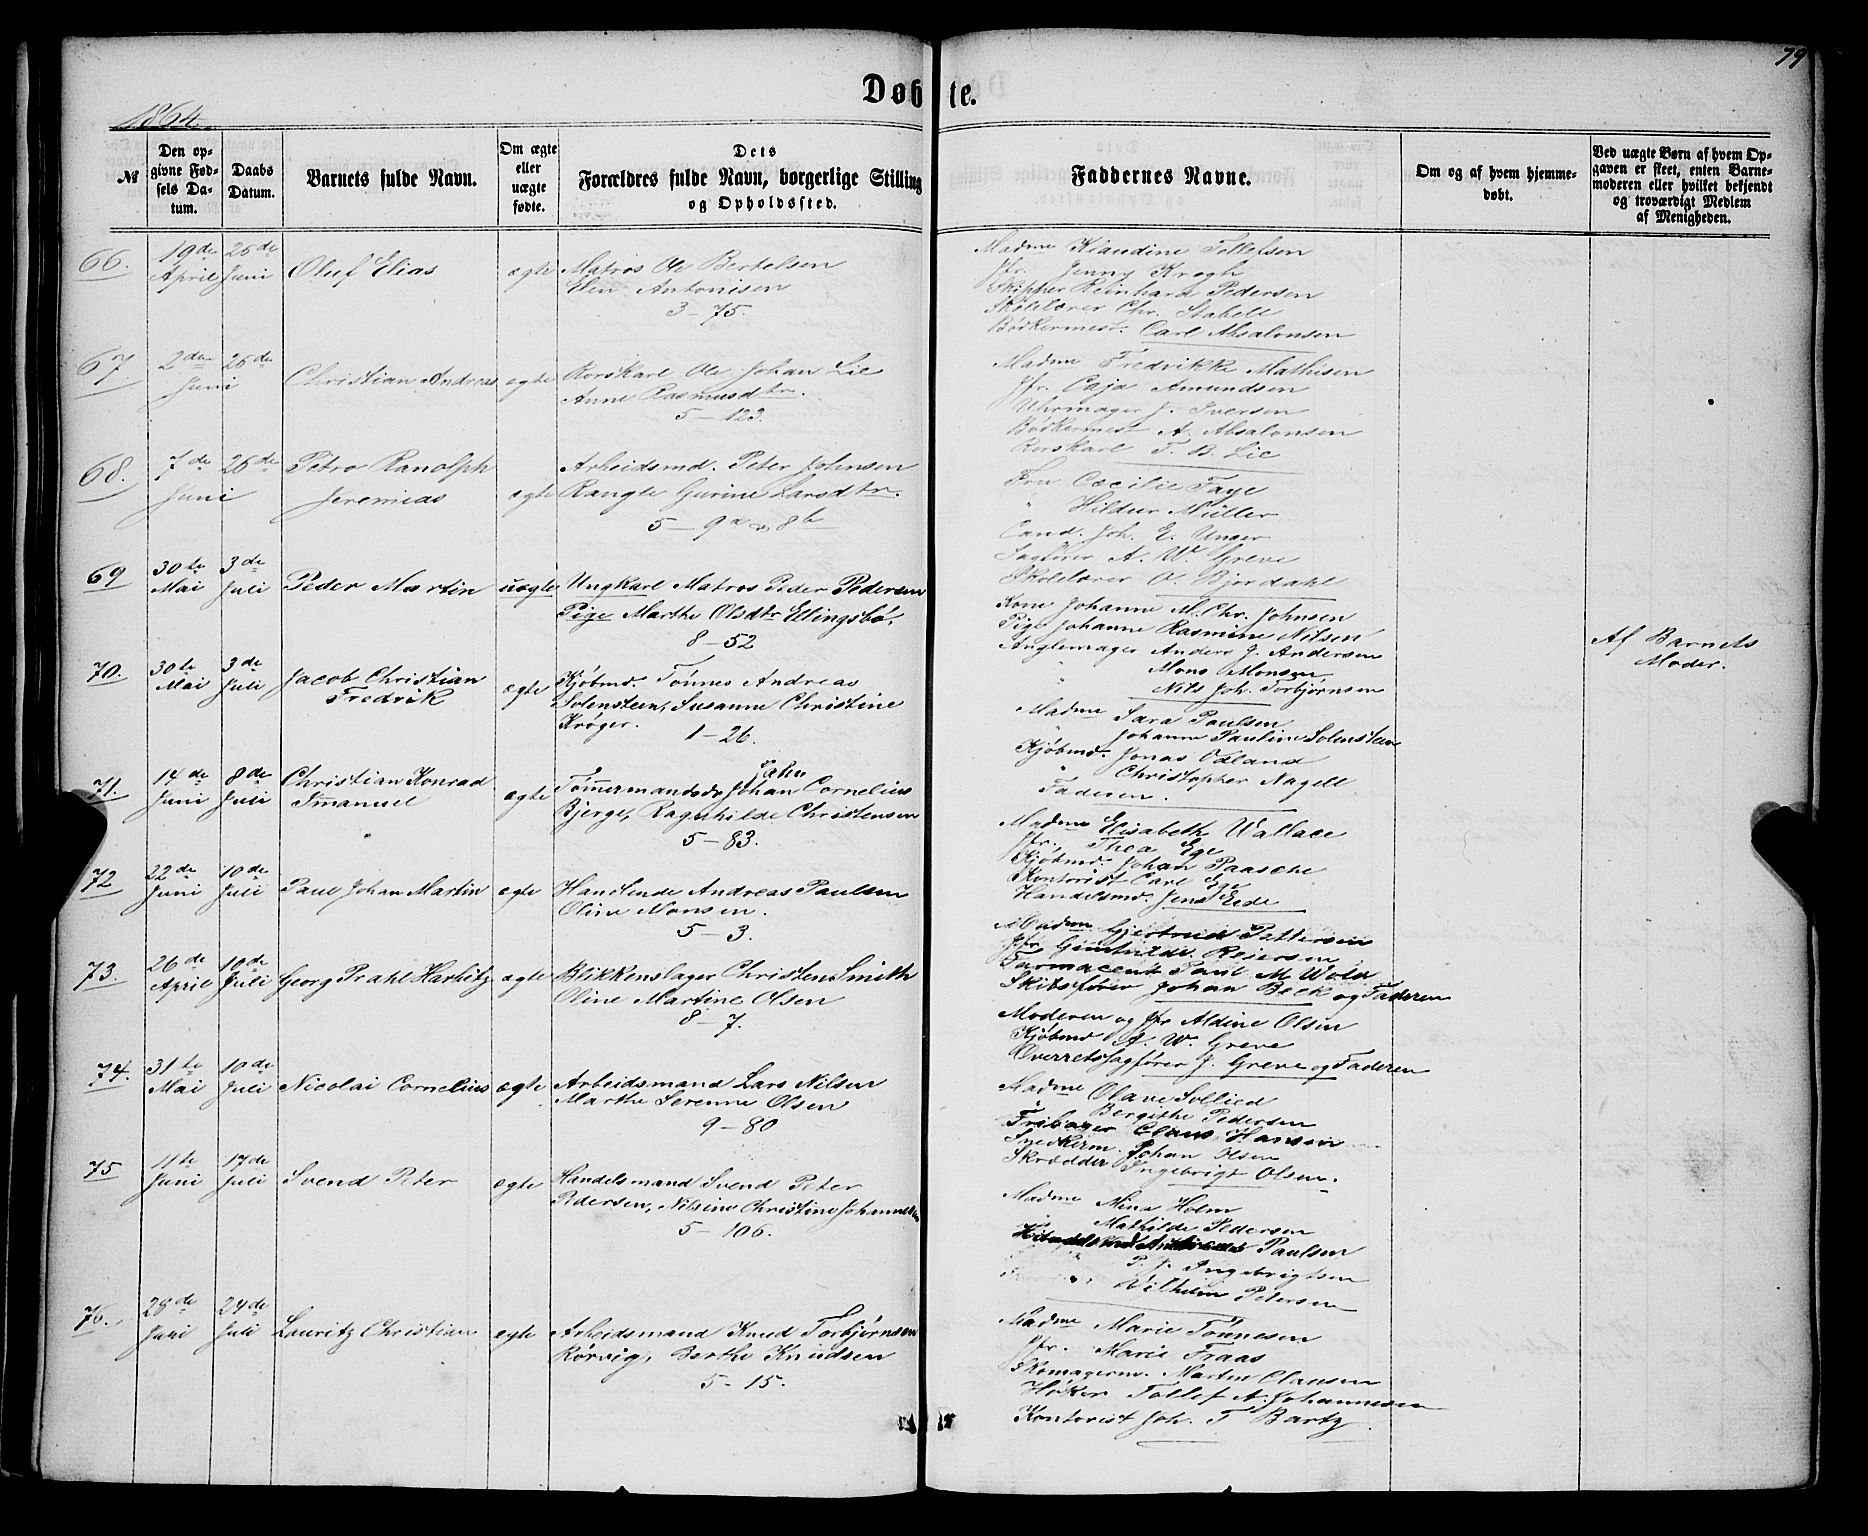 79
Døbte.
1864.
№
Den opgivne Fødsels Datum.
Daabs Datum.
Barnets fulde Navn.
Om ægte eller uægte fødte.
Dets Forældres fulde Navn, borgerlige Stilling og Opholdssted.
Faddernes Navne.
Om og af hvem hjemmedøbt.
Ved uægte Børn af hvem Opgaven er skeet, enten Barnemoderen eller hvilket bekjendt og troværdigt Medlem af Menigheden.
66.
19de April
26de Juni
Oluf Elias
ægte
Matros Ole Bertelsen
Elen Antonisen
3 – 75.
Madme Klaudine Tollefsen
Jfr. Jenny Krogh
Skipper Reinhard Pedersen
Skolelærer Chr. Stabell
Bødkermest. Carl Absalonsen
67
2den Juni
26de
Christian Andreas
ægte
Rorskarl Ole Johan Lie
Anne Rasmusdtr.
5 – 123.
Madme Fredrikke Mathisen
Jfr. Caja Amundsen
Uhrmager J. Iversen
Bødkermest A. Absalonsen
Rorskarl T. B. Lie
68.
7de Juni
26de
Petro Ranolph
Jeremias
ægte
Arbeidsmd. Peter Johnsen
Rangle Gurine Larsdtr.
5 – 9a & 8b
Fru Cæcilie Faye
" Hildur Müller
Cand. Joh. E. Unger
Sagfører A. W. Greve
Skolelærer O. Bjordahl
69
30te Mai
3de Juli
Peder Martin
uægte
Ungkarl Matros Peder Pedersen
Pige Marthe Olsdtr Ellingsbø.
8 – 52
Kone Johanne M. Chr. Johnsen
Pige Johanne Rasmine Nilsen
Anglemager Anders J. Andersen
Mons Monsen
" Nils Joh. Torbjørnsen
Af Barnets
Moder.
70.
30te Mai
3de Juli
Jacob Christian
Fredrik
ægte
Kjøbmd. Tønnes Andreas
Solensteen, Susanne Christine
Krøger.
1 – 26.
Madme Sara Paulsen
" Johanne Pauline Solensteen
Kjøbmd. Jonas Ødland
" Christopher Nagell
Faderen.
71.
14de Juni
8de Juli
Christian Konrad
Imanuel
ægte
Tømmermandsdr Johan Cornelius
Bjerge, Ragnhilde Christensen
5 – 83.
Madme Elisabeth Wallace
Jfr. Thea Ege
Kjøbmd. Johan Paasche
Kontorist Carl Ege
Handelsmd. Jens Eide
72
22de Juni
10de Juli
Paul Johan Martin
ægte
Handlende Andreas Paulsen
Oline Monsen.
5 – 3.
Madme Gjertrud Pettersen
Jfr Gunhilde Reiersen
Farmaceut Paul M. Wold
Skibsfører Johan Beck og Faderen
73.
26de April
10de Juli
Georg Prahl Harbitz
ægte
Blikkenslager Christen Smith
Oline Martine Olsen
8 – 7.
Moderen og Jfr Aldine Olsen
Kjøbmd A. W. Greve
Overretssagfører J. Greve og Faderen
74.
31te Mai
10de Juli
Nicolai Cornelius
ægte
Arbeidsmand Lars Nilsen
Marthe Serenne Olsen
9 – 80
Madme Olave Sollied
" Bergithe Pedersen
Fribager Claus Hansen
Snedkerm. Johan Olsen
Skrædder Ingebrigt Olsen.
75
11te Juni
17de Juli
Svend Peter
ægte
Handelsmand Svend Peter
Pedersen, Nilsine Christine Johannesen
5 – 106.
Madme Mina Holm
" Mathilde Pedersen
Handelsmd Andreas Paulsen
" P. J. Ingebrigtsen
" Vilhelm Petersen
76.
28de Juni
24de Juli
Lauritz Christian
ægte
Arbeidsmand Knud Torbjørnsen
Rørvig, Berthe Knudsen
5 – 15.
Madme Marie Tønnesen
Jfr. Marie Fraas
Skomagerm. Martin Clausen
Høker Tollef A. Johannesen
Kontorist Joh. T. Bartz